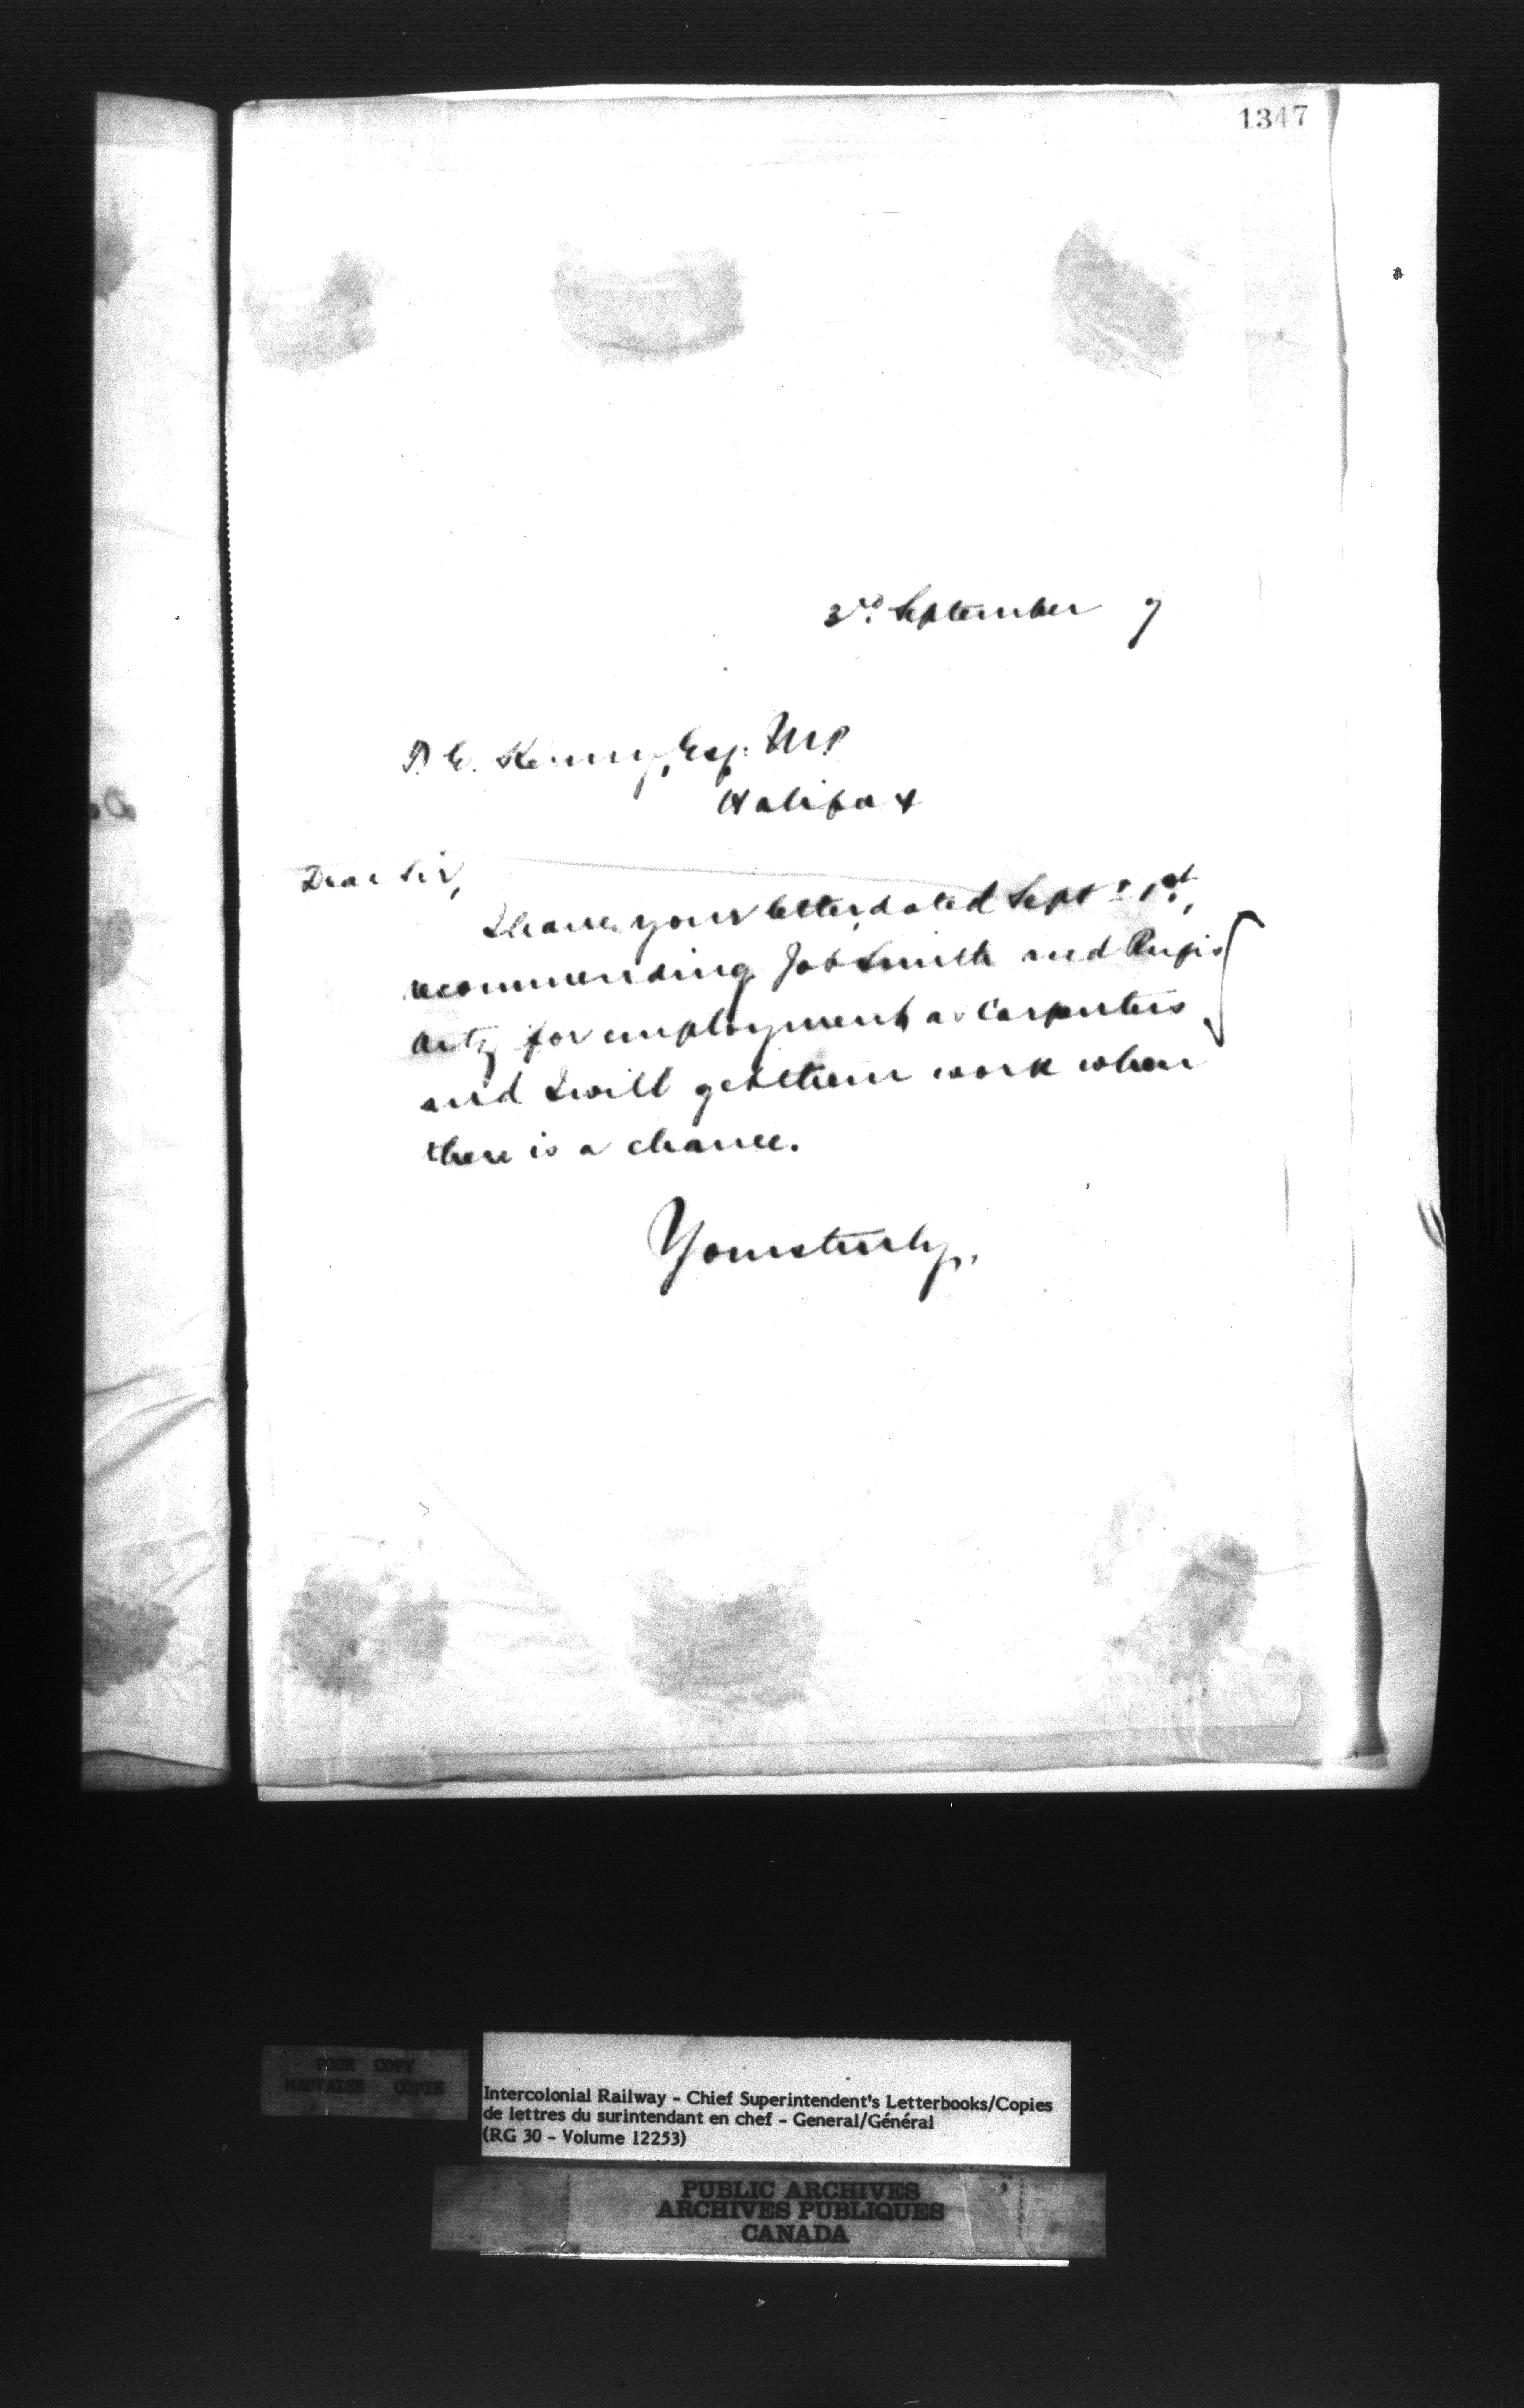 1347
3rd. September 7
T. E. Kenny, Esq: M.P.
Halifax
Dear Sir,
I have your letter, dated Sept: 1st,
recommending Job Smith and
for employment as Carpenters
and I will get them work when
there is a chance.
Yours truly,
POOR COPY
MAUVAISE COPIE
Intercolonial Railway - Chief Superintendent's Letterbooks/Copies
de lettres du surintendant en chef - General/Général
(RG 30 - Volume 12253)
PUBLIC ARCHIVES
ARCHIVES PUBLIQUES
CANADA